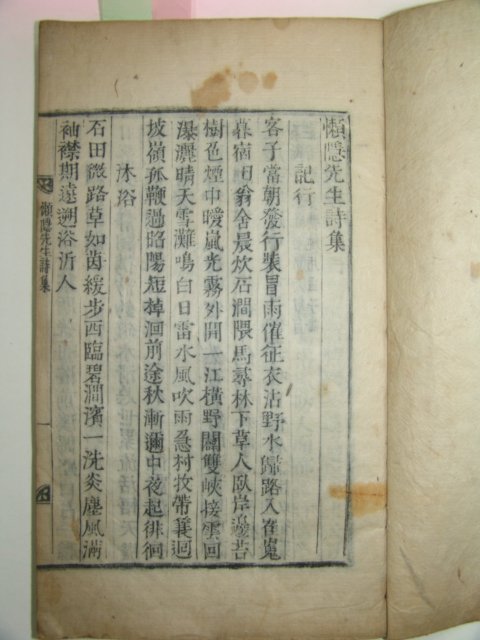 懶隱先生詩集
記行
客子當朝發行裝冒雨催征衣沾野水歸路入崔嵬
暮宿田翁舍晨炊石澗隈馬尋林下草人臥岸邊苔
樹色煙中暖嵐光霧外開一江橫野闊雙峽接雲回
瀑灑晴天雪灘鳴白日雷水風吹雨急村牧帶蓑迴
坡嶺孤鞭過昭陽短棹洄前途秋漸邇中夜起徘徊
沐浴
石田微路草如茵緩步西臨碧澗濱一洗炎塵風滿
袖襟期遠遡浴沂人
懶隱先生詩集
一